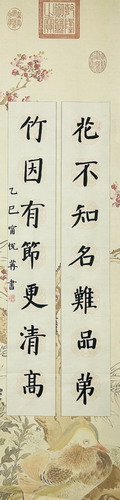 花不知名難品弟
竹因有節更清高
乙巳甯悅苒書